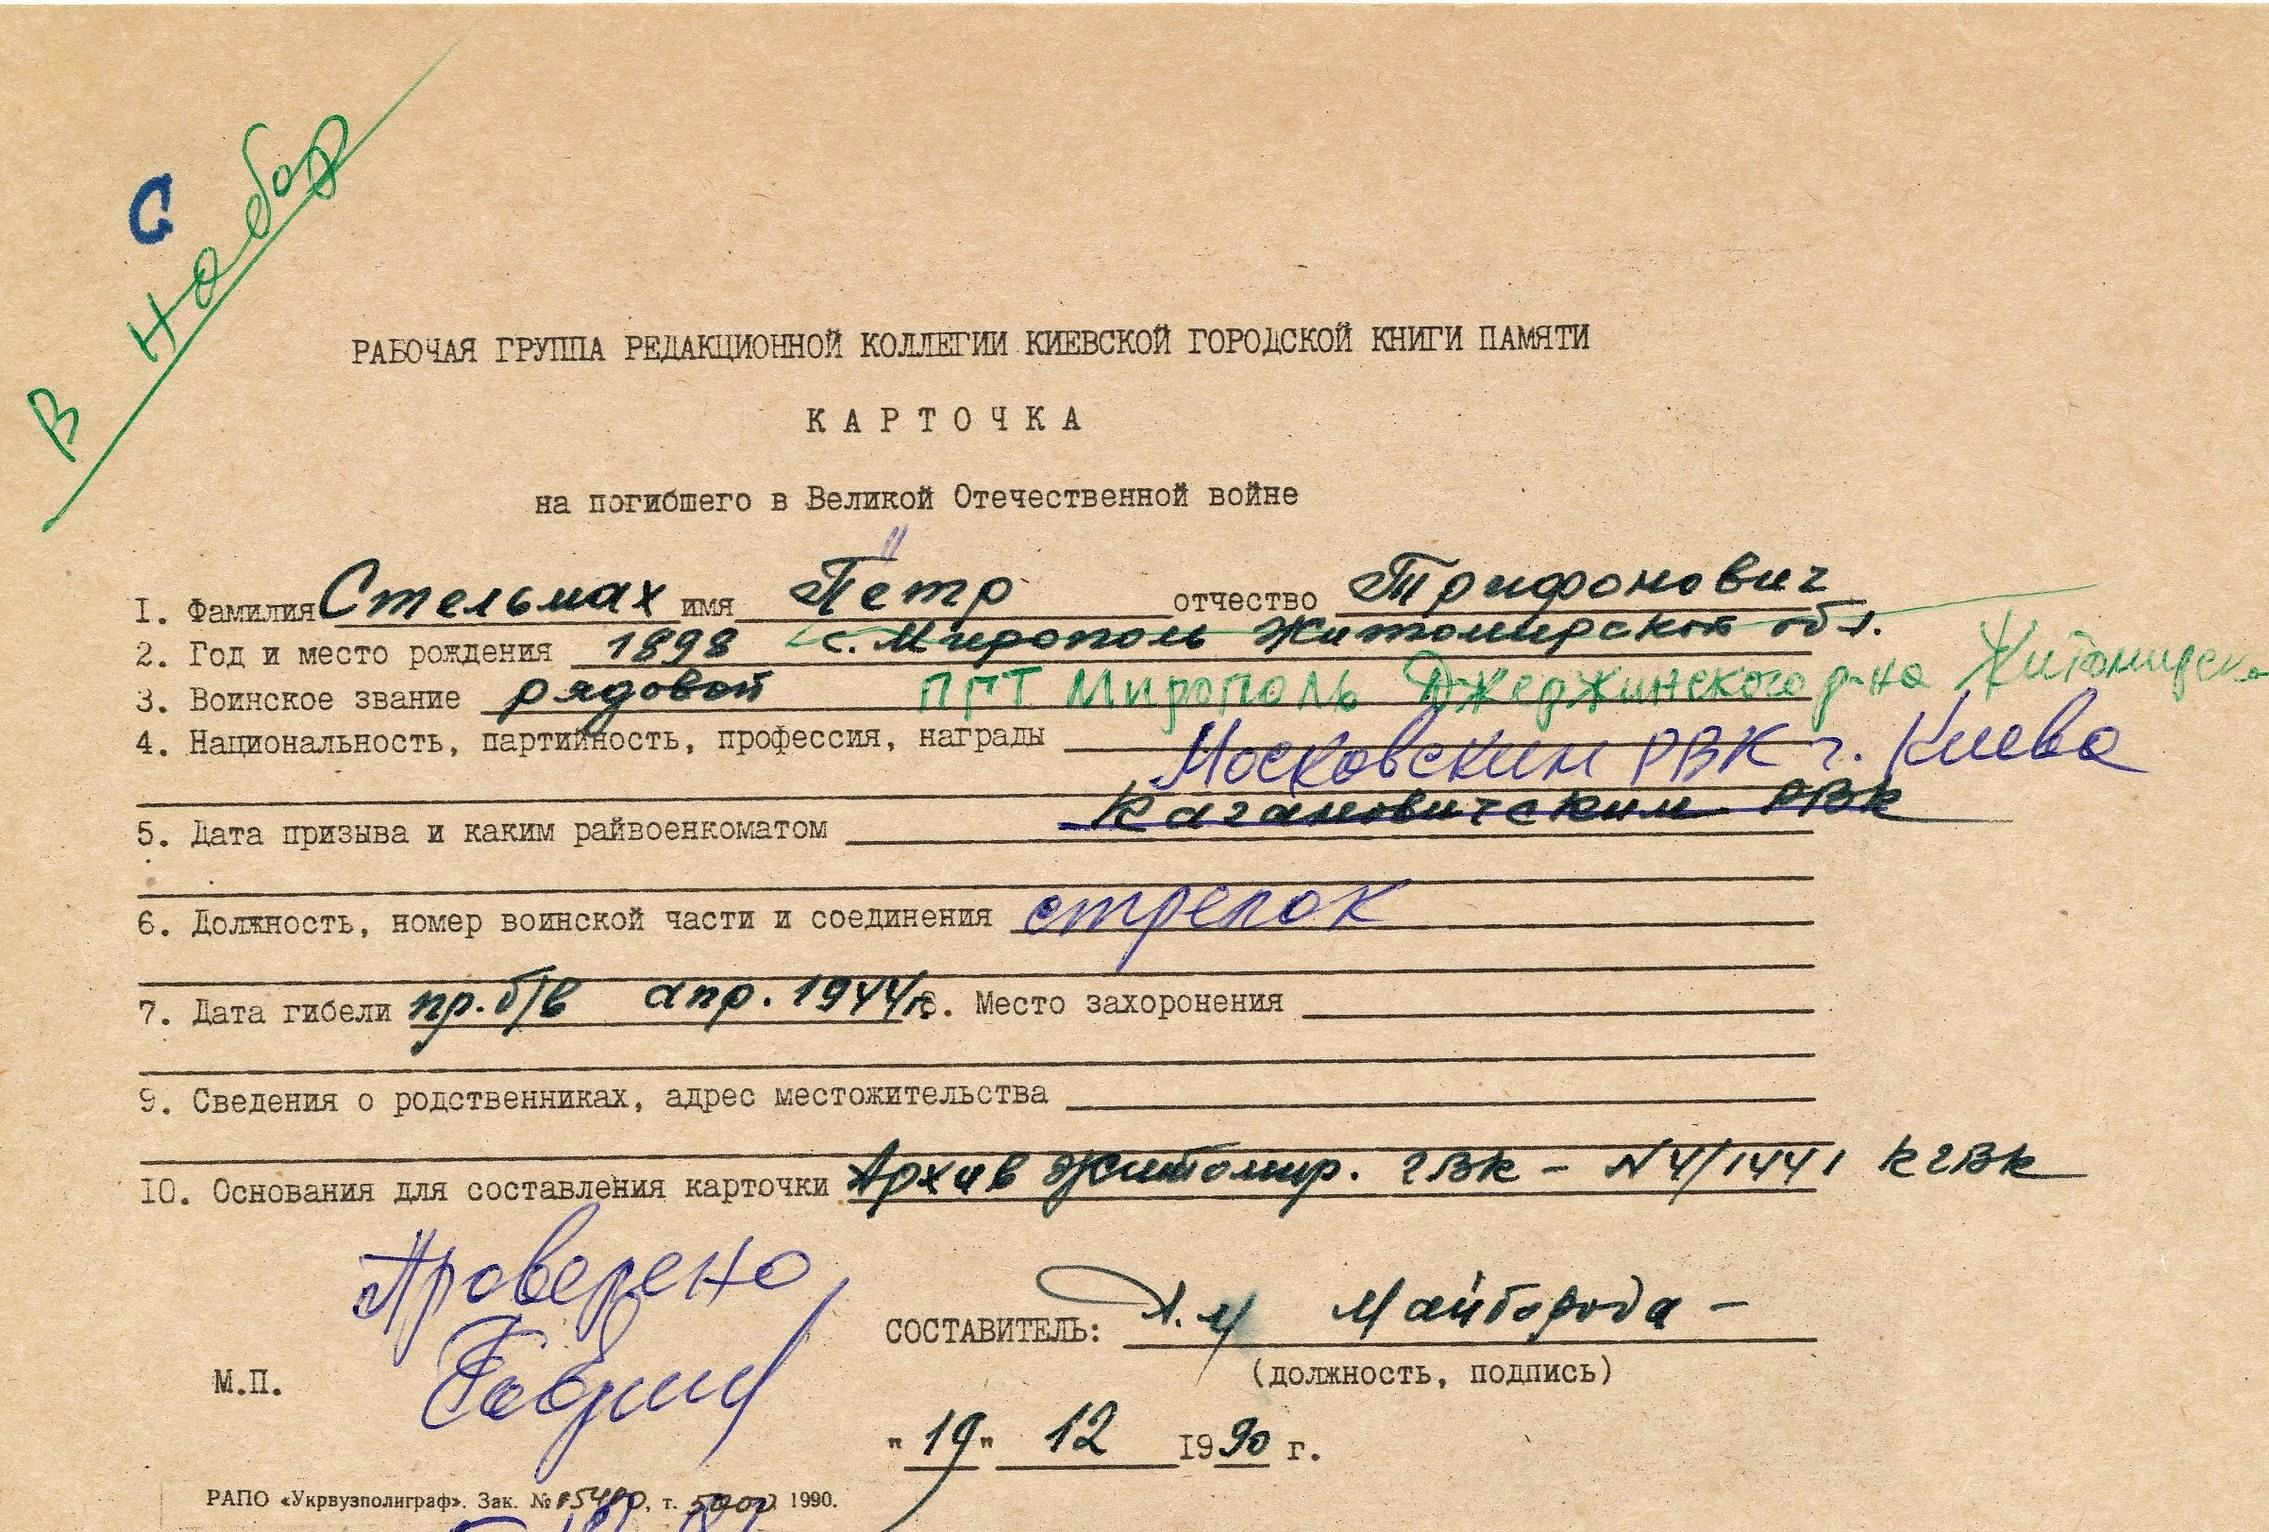 С
В набор
РАБОЧАЯ ГРУППА РЕДАКЦИОННОЙ КОЛЛЕГИИ КИЕВСКОЙ ГОРОДСКОЙ КНИГИ ПАМЯТИ
КАРТОЧКА
на погибшего в Великой Отечественной войне
I. Фамилия Стельмах имя Пётр отчество Трифонович
2. Год и место рождения 1898 с. Мирополь Житомирской обл.
3. Воинское звание рядовой ПГТ Мирополь Джержинского р-на Житомирско
4. Национальность, партийность, профессия, награды
Московским РВК г. Киева
Кагановичским РВК
5. Дата призыва и каким райвоенкоматом
6. Должность, номер воинской части и соединения стрелок
7. Дата гибели пр. б/в апр. 1944г. 8. Место захоронения
9. Сведения о родственниках, адрес местожительства
10. Основания для составления карточки Архив Житомир. ГВК - N4/1441 КГВК
Проверено
СОСТАВИТЕЛЬ: Майборода -
М.П.
(должность, подпись)
"19" 12 1990 г.
РАПО «Укрвузполиграф». Зак. № т. 1990.